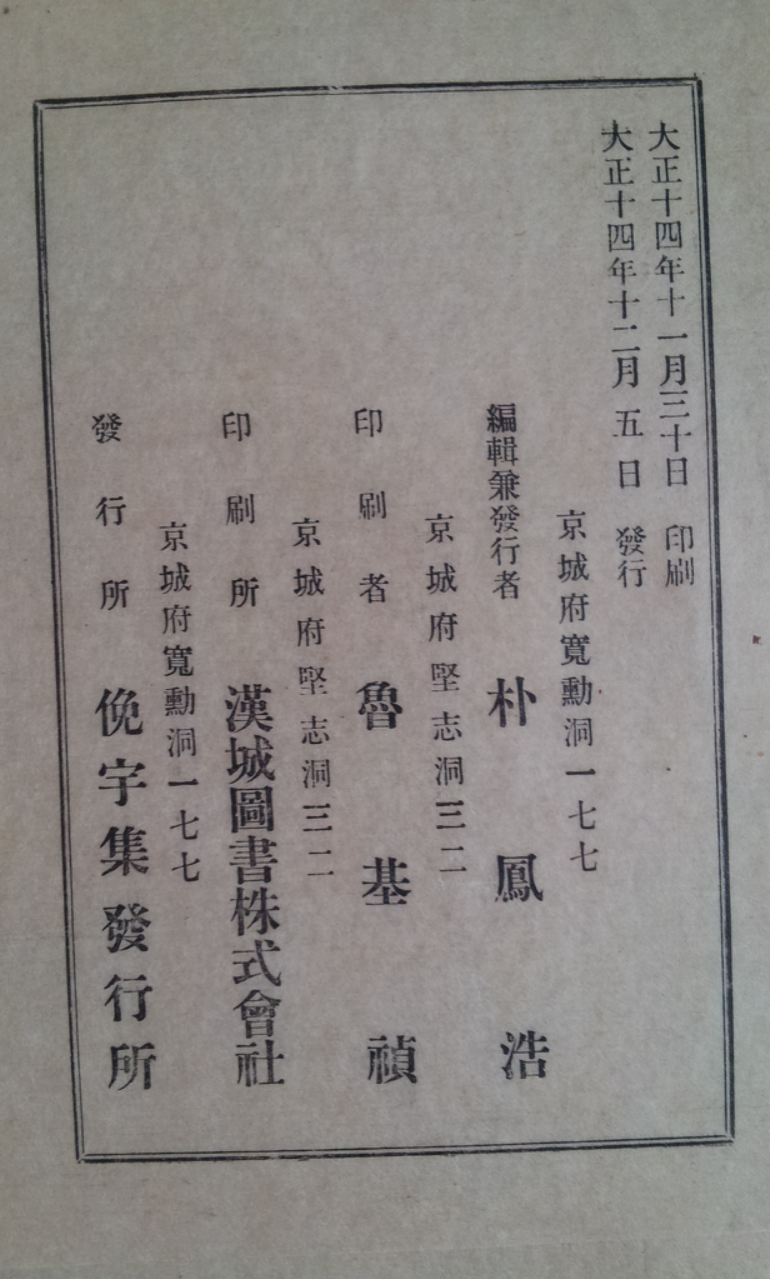 大正十四年十一月三十日 印刷
大正十四年十二月五日 發行
京城府寬勳洞一七七
編輯兼發行者 朴鳳浩
京城府堅志洞三二
印刷者 魯基禎
京城府堅志洞三二
印刷所 漢城圖書株式會社
京城府寬勳洞一七七
發行所 俛宇集發行所